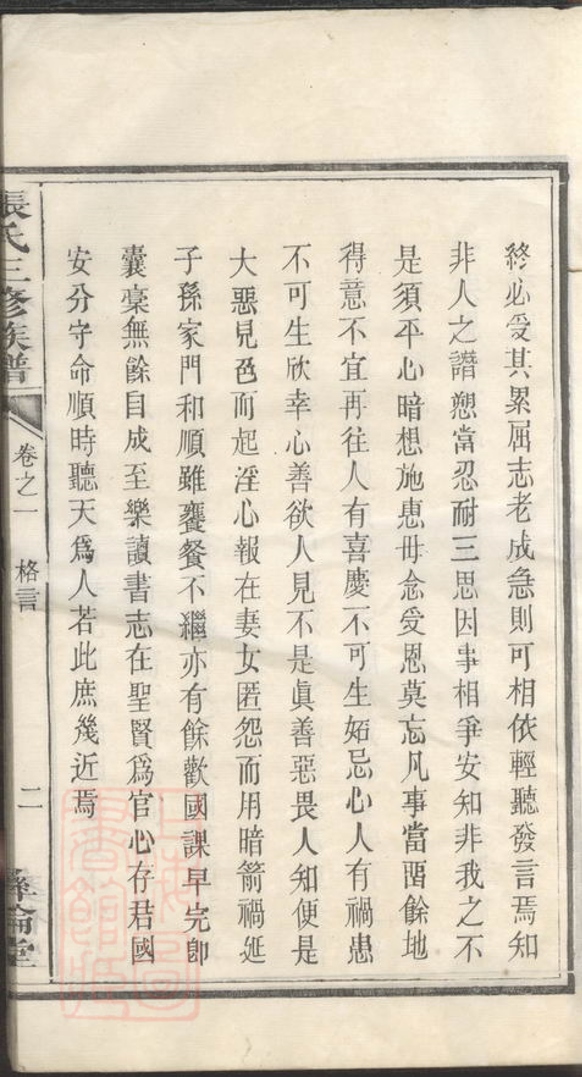 終必受其累屈志老成急則可相依輕聽發言焉知
非人之譖愬當忍耐三思因事相爭安知非我之不
是須平心暗想施惠毋念受恩莫忘凡事當留餘地
得意不宜再往人有喜慶不可生妬忌心人有禍患
不可生欣幸心善欲人見不是眞善惡畏人知便是
大惡見色而起淫心報在妻女匿怨而用暗箭禍延
子孫家門和順雖饔餐不繼亦有餘歡國課早完卽
囊橐無餘自成至樂讀書志在聖賢爲官心存君國
安分守命順時聽天爲人若此庶幾近焉
張氏三修族譜
卷之一
格言
二
上海圖書館藏